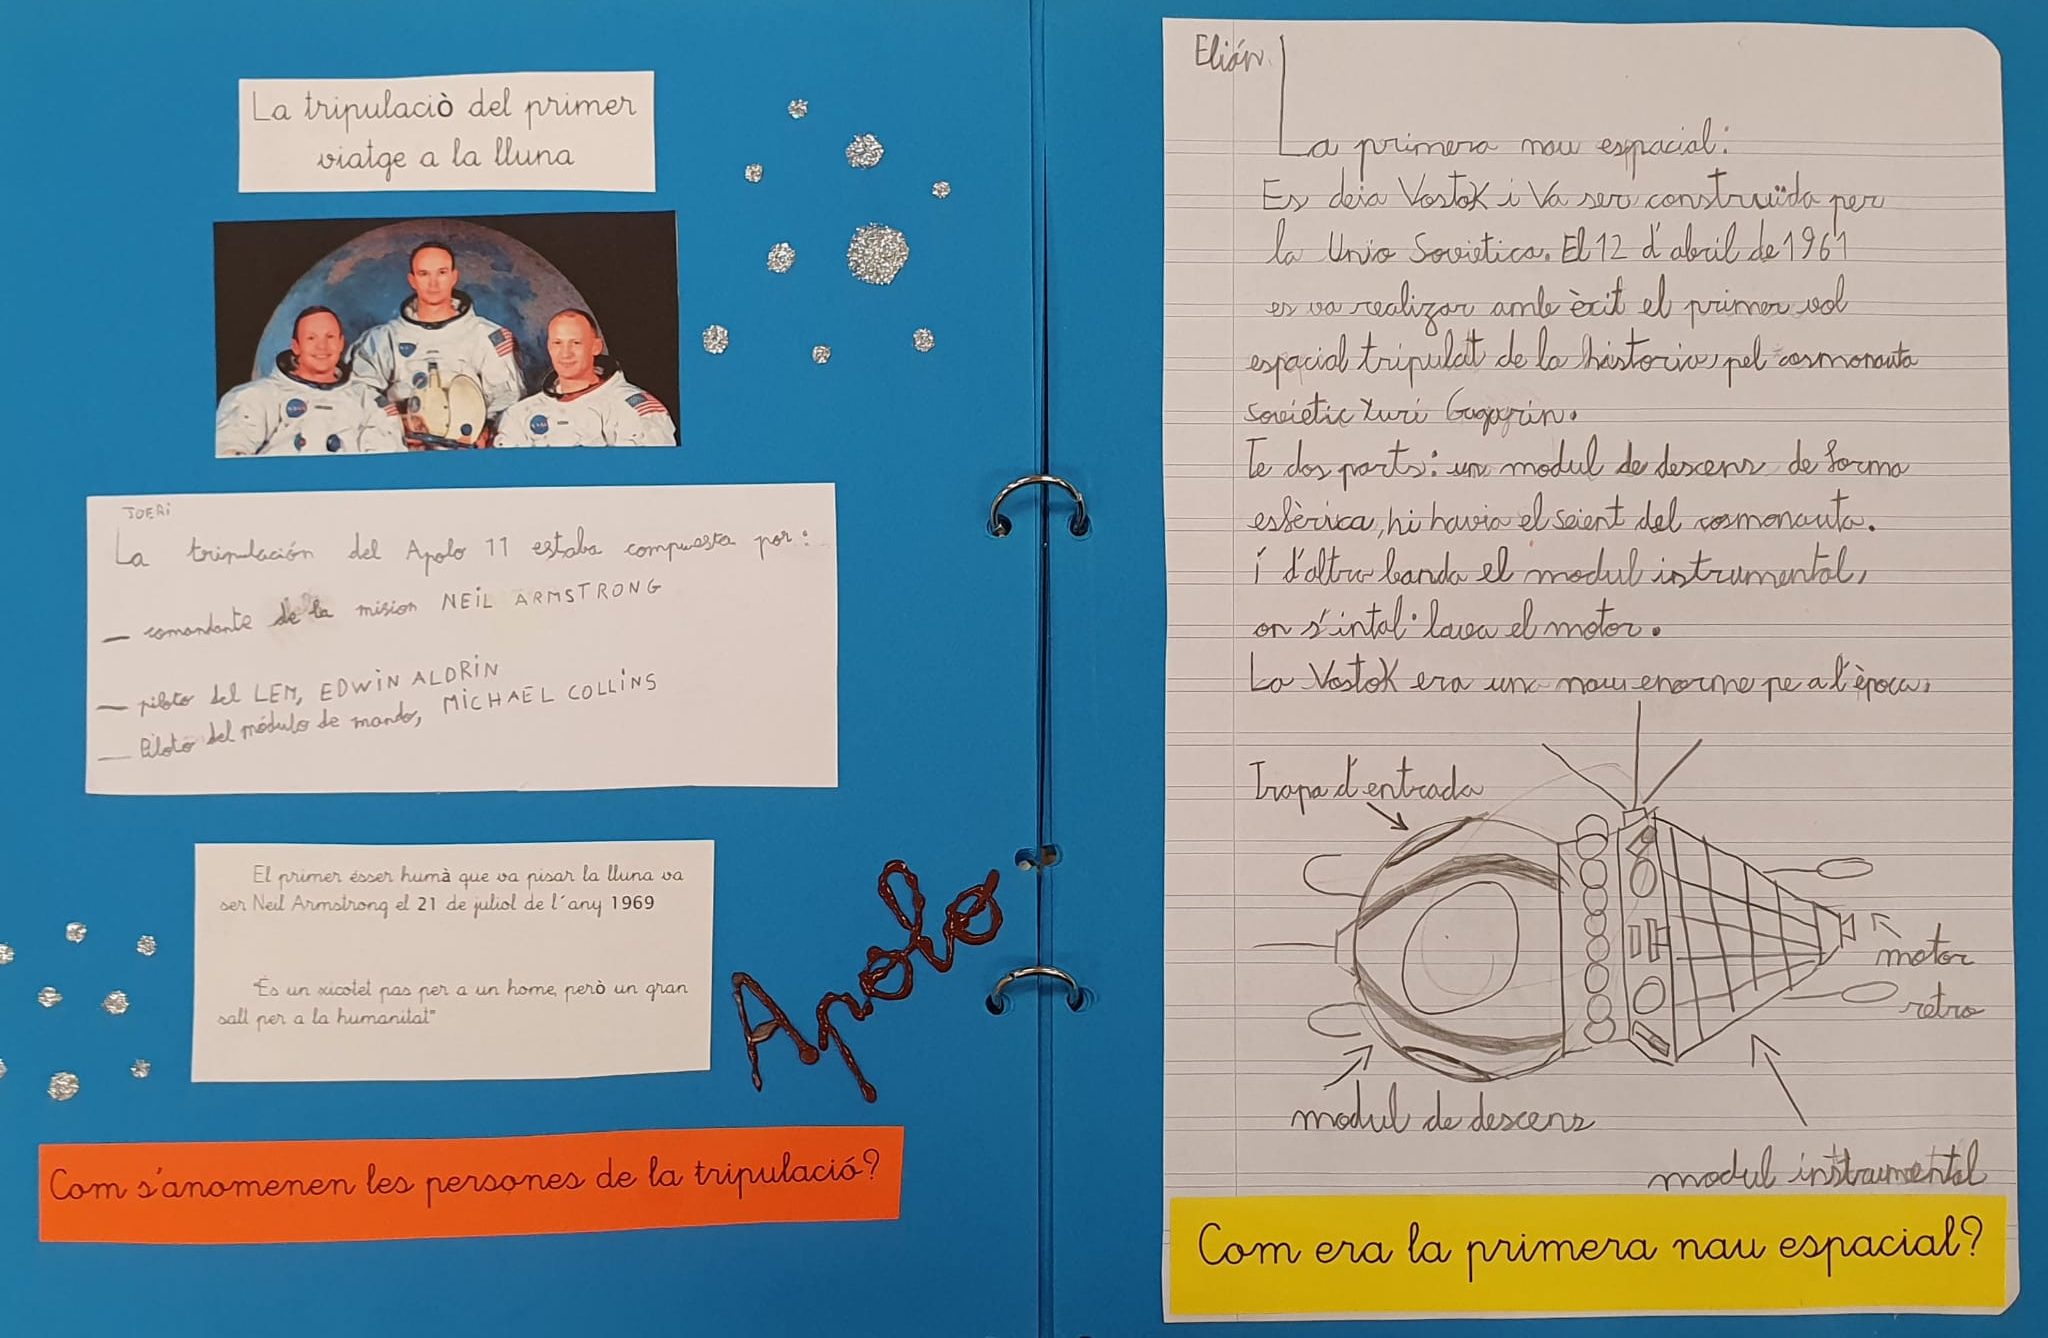 La tripulaciò del primer
viatge a la lluna
JOERi
La tripulación del Apolo 11 estaba compuesta por:
— comandante de la mision NEiL ARMSTRONG
— piloto del LEM, EDWiN ALDRiN
— Piloto del módulo de mando, MiCHAEL COLLiNS
El primer ésser humà que va pisar la lluna va
ser Neil Armstrong el 21 de juliol de l´any 1969
"És un xicotet pas per a un home, però un gran
salt per a la humanitat"
Apolo
Com s'anomenen les persones de la tripulació?
Elián.
La primera nau espacial:
Es deia Vostok i Va ser construïda per
la Unio Sovietica. El 12 d'abril de 1961
es va realizar amb èxit el primer vol
espacial tripulat de la historia, pel cosmonauta
sovietic Yuri Gagarin.
Te dos parts: un modul de descens de forma
esfèrica, hi havia el seient del cosmonauta.
i d'altra banda el modul instrumental,
on s'intal·lava el motor.
La Vostok era una nau enorme pe a l'època,
Trapa d'entrada
motor
retro
modul de descens
modul instrumental
Com era la primera nau espacial?